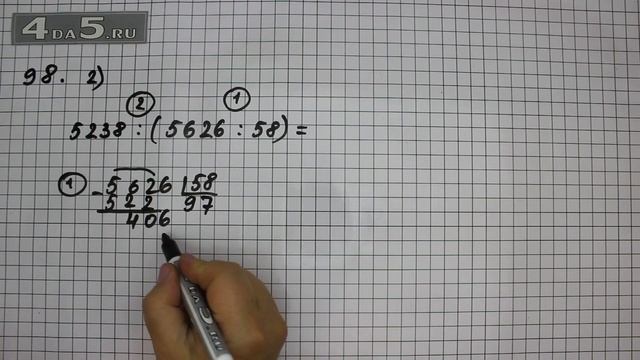 4DA5.RU
98. 2)
2 1
5238 : ( 5626 : 58) =
1 - 5626 58
522 97
406